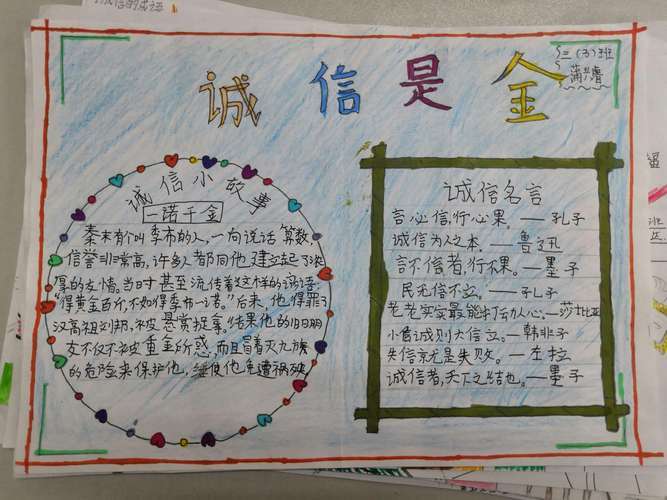 诚信的成语
诚信是金
三(3)班
蒲
诚信小故事
一诺千金
秦末有个叫季布的人,一向说话算数,
信誉非常高,许多人都同他建立起了浓
厚的友情。当时甚至流传着这样的谚语:
“得黄金百斤,不如得季布一诺。”后来,他得罪了
汉高祖刘邦,被悬赏捉拿。结果他的旧日朋
友不仅不被重金所惑,而且冒着灭九族
的危险来保护他,使他免遭祸殃
诚信名言
言必信,行必果。——孔子
诚信为人之本。——鲁迅
言不信者,行不果。——墨子
民无信不立。——孔子
老老实实最能打动人心。——莎士比亚
小信诚则大信立。——韩非子
失信就是失败。——左拉
诚信者,天下之结也。——墨子